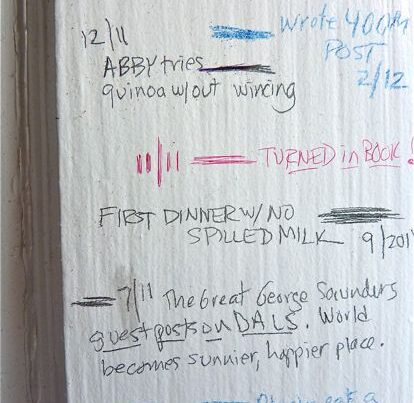 12/11
Wrote 400th
POST
2/12
ABBY tries
quinoa w/out wincing
11/11 TURNED in BOOK!
FIRST DINNER W/ NO
SPILLED MILK 9/2011
7/11 The Great George Saunders
guest posts on DALS. World
becomes sunnier, happier place.